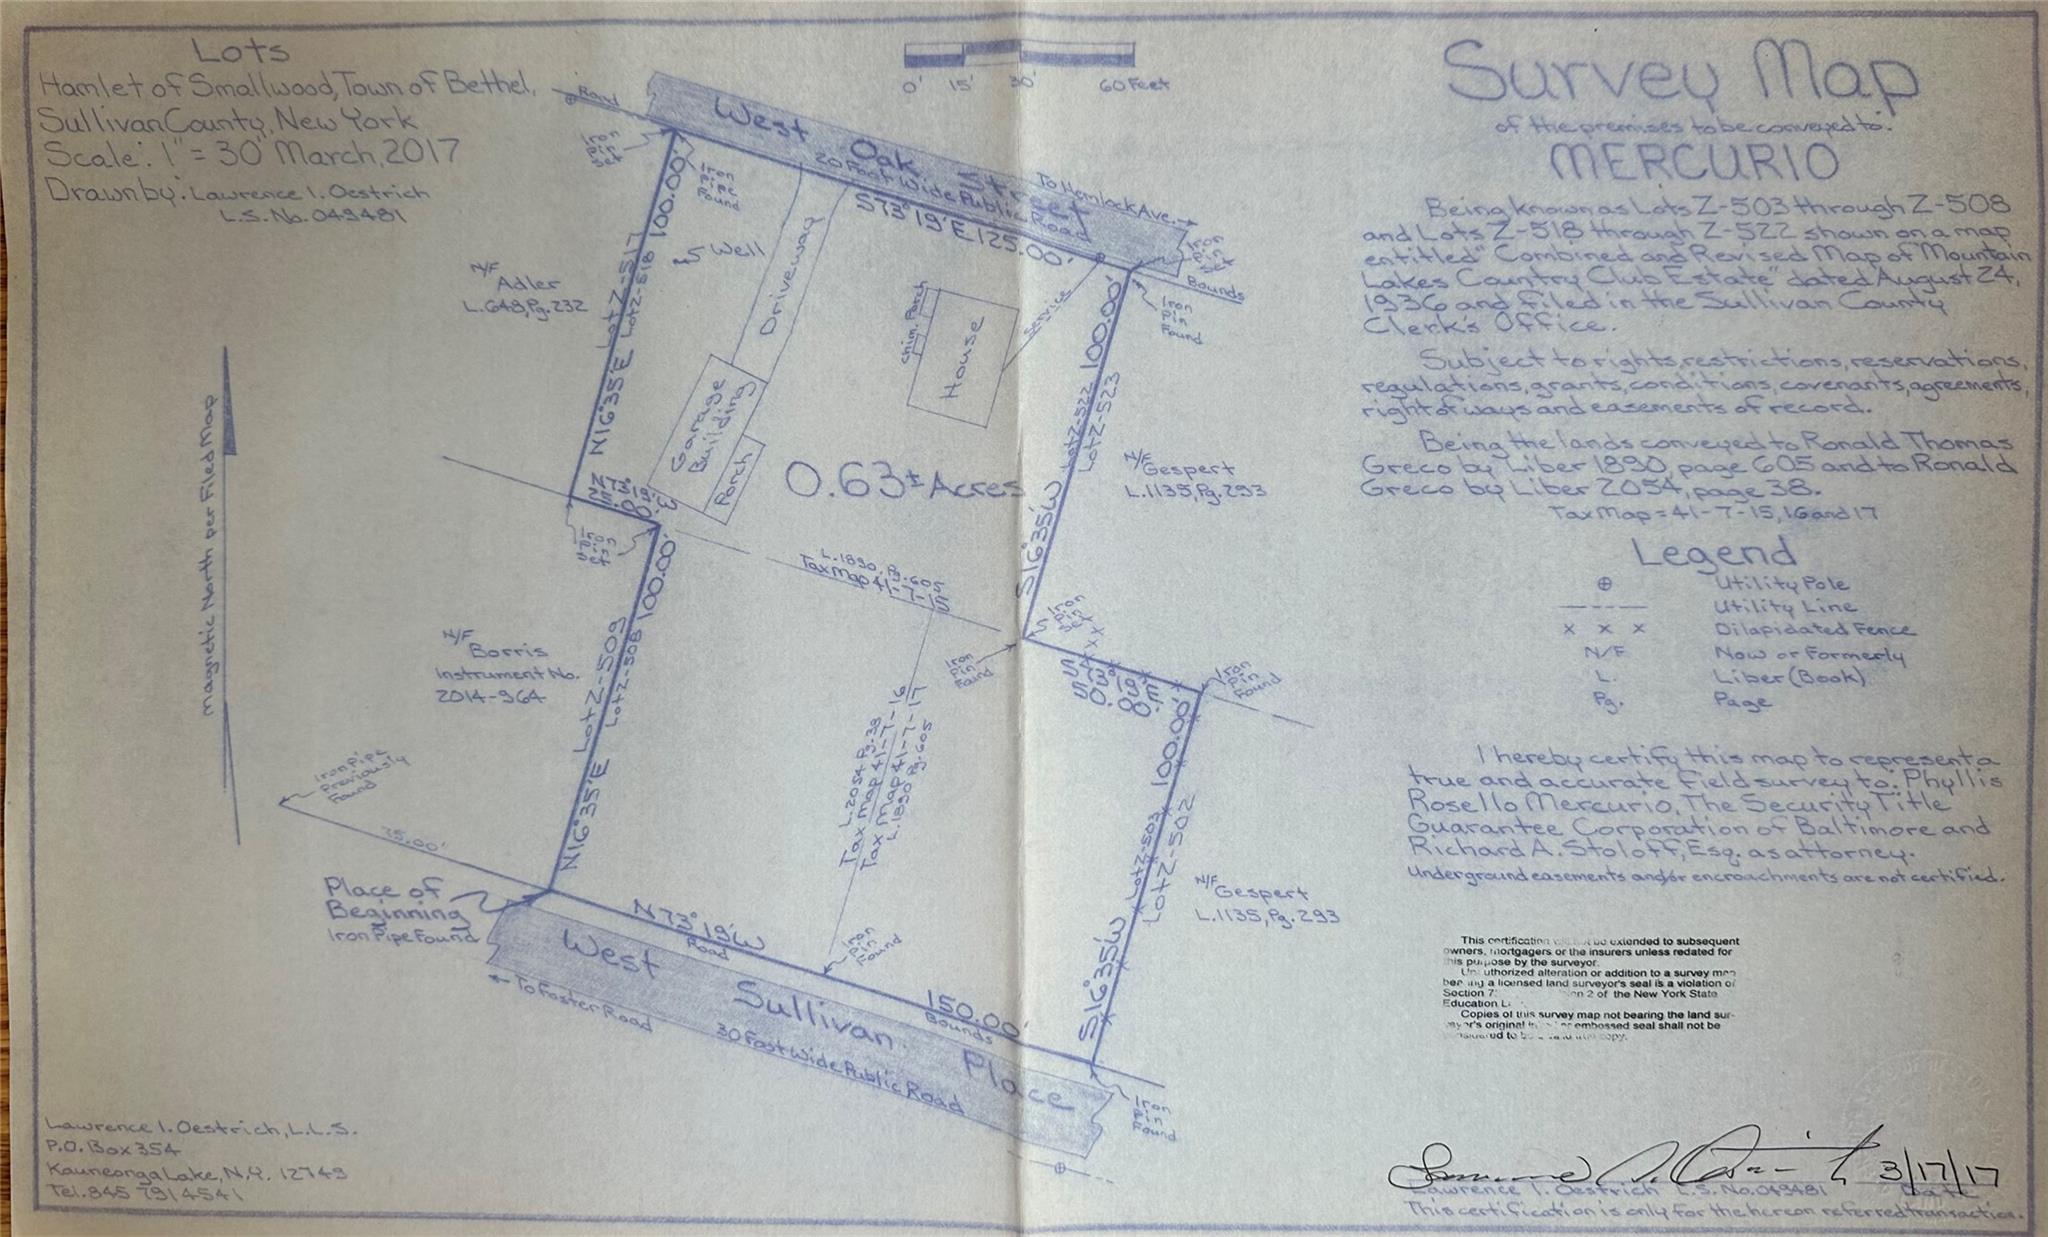 Lots
Hamlet of Smallwood, Town of Bethel,
Sullivan County, New York
Scale: 1" = 30' March, 2017
Drawn by: Lawrence I. Oestrich
L.S. No. 049481
0' 15' 30' 60 Feet
Survey Map
of the premises to be conveyed to:
MERCURIO
Being known as Lots Z-503 through Z-508
and Lots Z-518 through Z-522 shown on a map
entitled "Combined and Revised Map of Mountain
Lakes Country Club Estate" dated August 24,
1936 and filed in the Sullivan County
Clerk's Office.
Subject to rights, restrictions, reservations,
regulations, grants, conditions, covenants, agreements,
right of ways and easements of record.
Being the lands conveyed to Ronald Thomas
Greco by Liber 1890, page 605 and to Ronald
Greco by Liber 2054, page 38.
Tax Map = 41-7-15, 16 and 17
Legend
Utility Pole
Utility Line
x x x Dilapidated Fence
N/F Now or Formerly
L. Liber (Book)
Pg. Page
I hereby certify this map to represent a
true and accurate field survey to: Phyllis
Rosello Mercurio, The Security Title
Guarantee Corporation of Baltimore and
Richard A. Stoloff, Esq. as attorney.
Underground easements and/or encroachments are not certified.
This certification be extended to subsequent
owners, mortgagers or the insurers unless redated for
this purpose by the surveyor.
alteration or addition to a survey map
a licensed land surveyor's seal is a violation of
Section 2 of the New York State
Education
Copies of this survey map not bearing the land sur-
original embossed seal shall not be
copy.
3/17/17
Lawrence I. Oestrich L.S. No. 049481 Date
This certification is only for the hereon referred transaction.
Road
West Oak Street
20 Foot Wide Public Road
To Hemlock Ave.
S73°19'E 125.00'
Iron Pin Set
Iron Pipe Found
Iron Pin Set
Bounds
Iron Pin Found
Well
Driveway
Service
chim. Porch
House
Garage Building
Porch
N/F
Adler
L.648, Pg.232
N16°35'E 100.00'
Lot Z-517
Lot Z-518
magnetic North per Filed Map
N73°19'W
25.00'
Iron Pin Set
0.63± Acres
S16°35'W 100.00'
Lot Z-522
Lot Z-523
N/F
Gespert
L.1135, Pg.293
L.1890, Pg.605
Tax Map 41-7-15
Iron Pin Set
Iron Pin Found
S73°19'E
50.00'
Iron Pin Found
N/F
Borris
Instrument No.
2014-964
N16°35'E 100.00'
Lot Z-509
Lot Z-508
L.2054 Pg.38
Tax Map 41-7-16
Tax Map 41-7-17
L.1890 Pg.605
S16°35'W 100.00'
Lot Z-503
Lot Z-502
N/F
Gespert
L.1135, Pg.293
Iron Pipe
Previously
Found
75.00'
Place of
Beginning
Iron Pipe Found
N73°19'W 150.00'
Road Bounds
Iron Pin Found
West Sullivan Place
To Foster Road
30 Foot Wide Public Road
Iron Pin Found
Lawrence I. Oestrich, L.L.S.
P.O. Box 354
Kauneonga Lake, N.Y. 12749
Tel. 845 791 4541